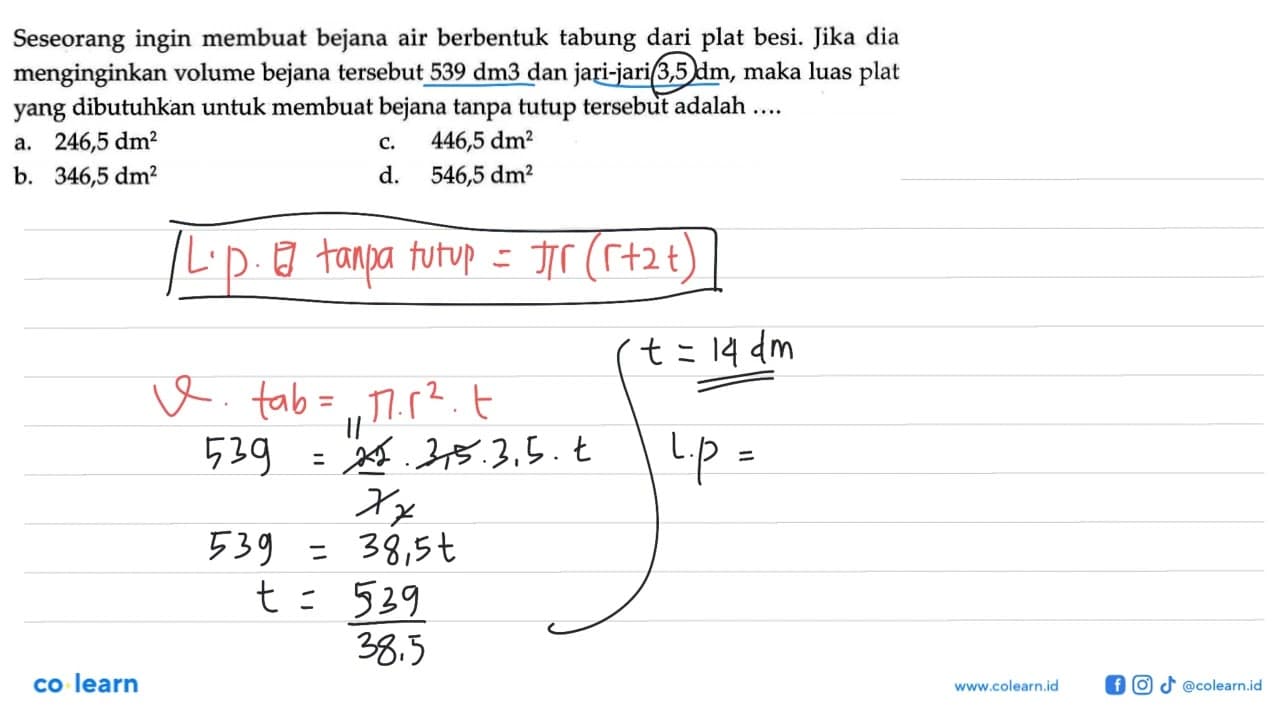 Seseorang ingin membuat bejana air berbentuk tabung dari plat besi. Jika dia
menginginkan volume bejana tersebut 539 dm3 dan jari-jari 3,5 dm, maka luas plat
yang dibutuhkan untuk membuat bejana tanpa tutup tersebut adalah ....
a. 246,5 dm² c. 446,5 dm²
b. 346,5 dm² d. 546,5 dm²
L.p. tanpa tutup = πr (r+2t)
t = 14 dm
V. tab = π.r². t
11
539 = 22 . 3,5 . 3,5 . t
7
L.p =
539 = 38,5t
t = 539
38.5
co learn
www.colearn.id
@colearn.id